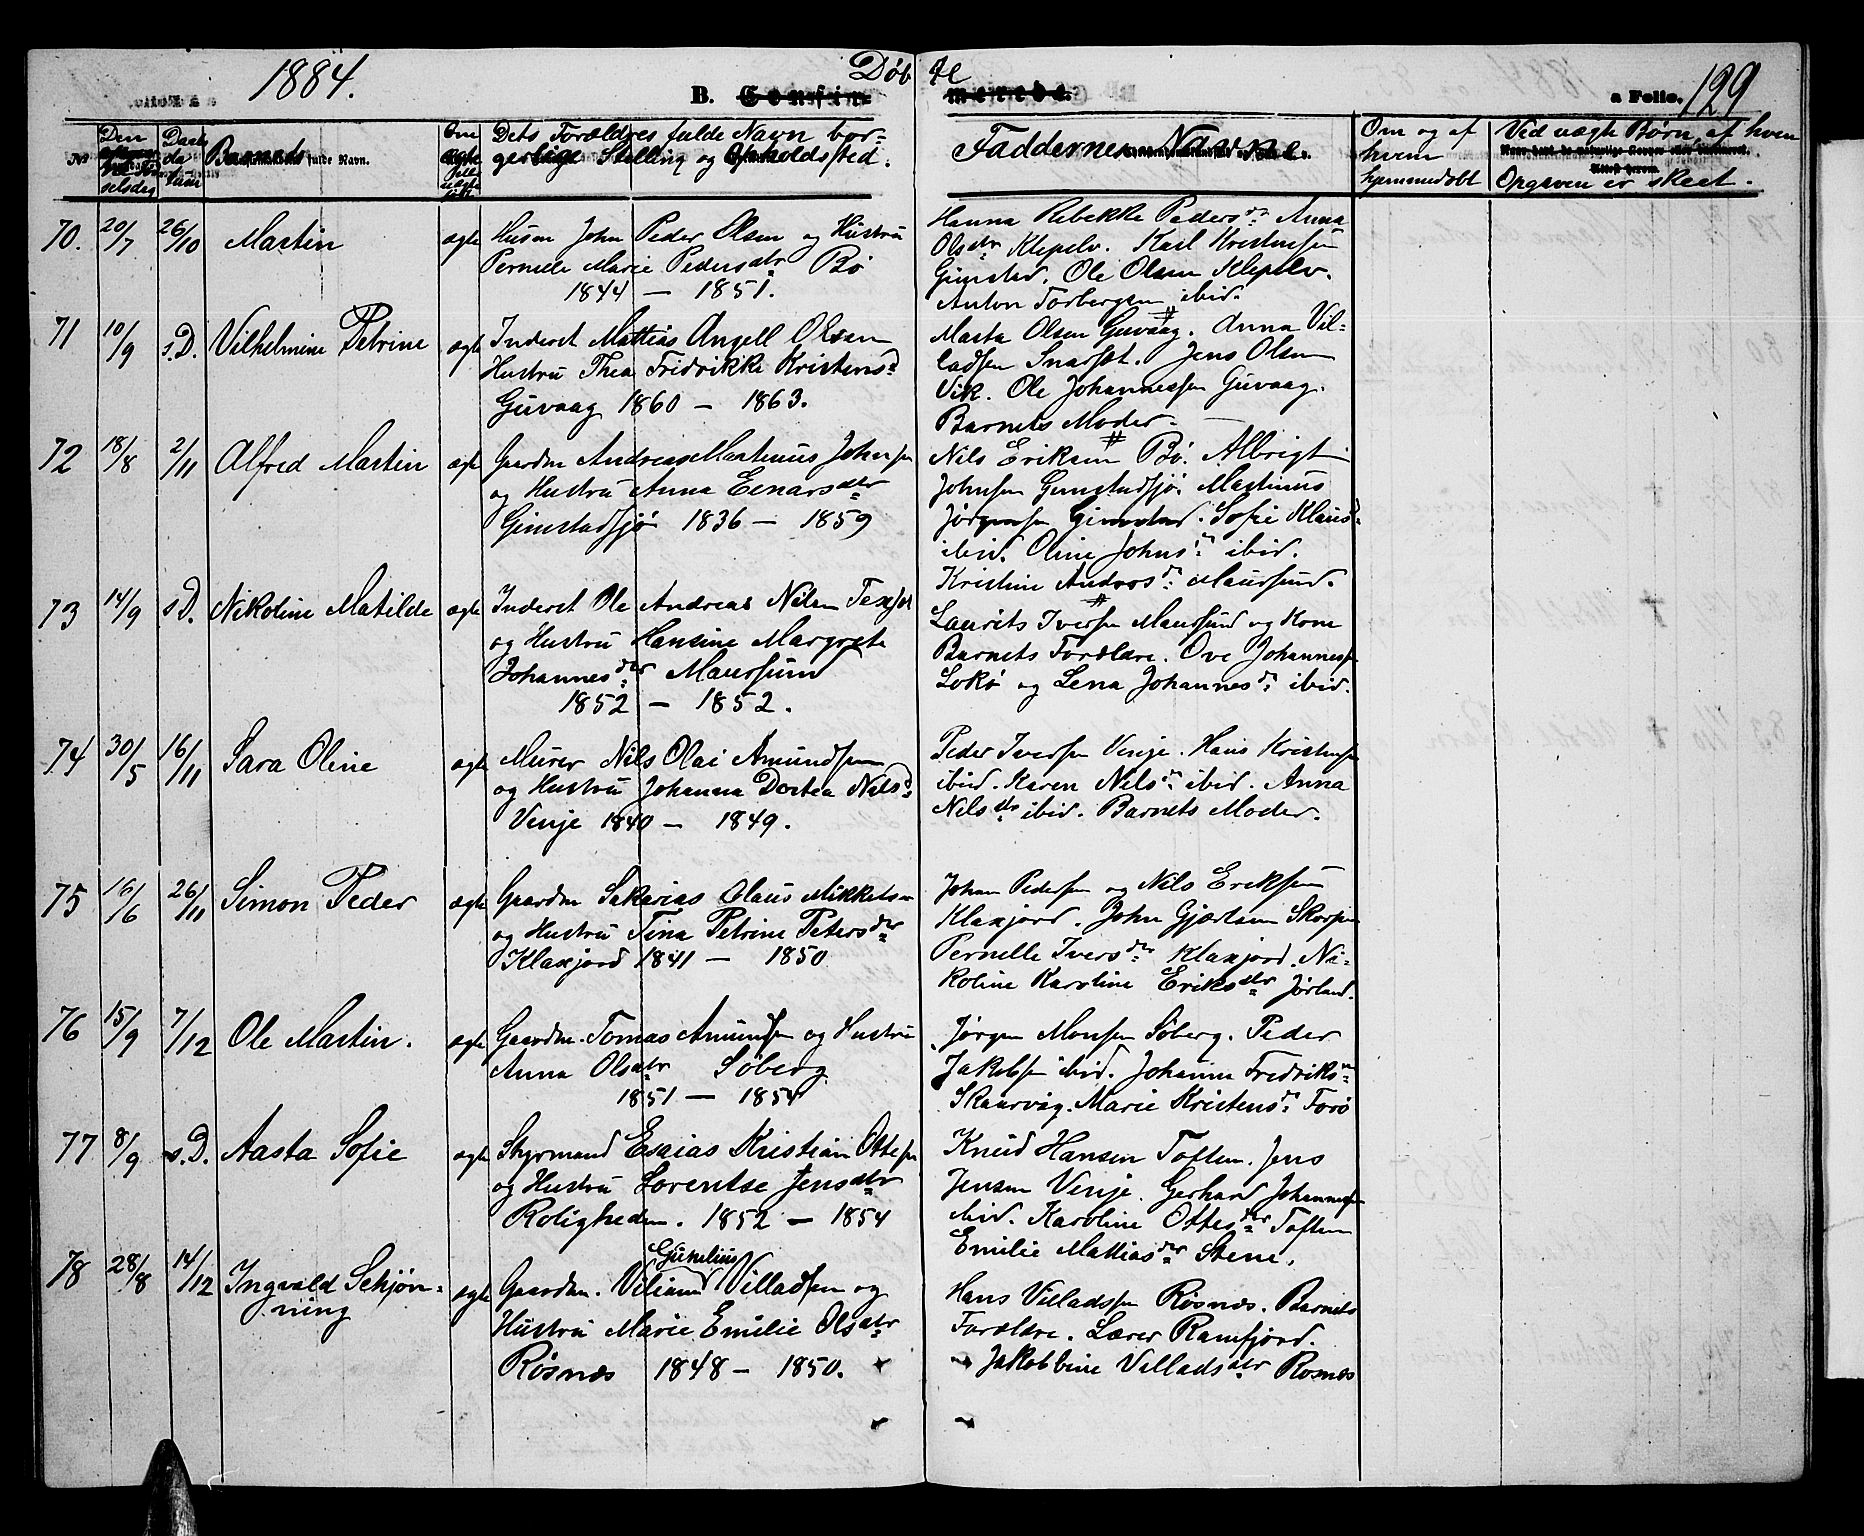 1884.
Døbte
B.
a Folio. 129
Barnets fulde Navn.
Dets Forældres fulde Navn bor-
gerlige Stilling og Opholdssted.
Faddernes Navne
Om og af
hvem
hjemmedøbt
Ved uægte Børn af hvem
Opgaven er skeet.
70. 20/7 26/10 Martin
ægte
Husm John Peder Olsen og Hustru
Pernele Marie Pedersdtr Bö
1844 — 1851.
Hanna Rebekke Pedersd. Anna
Olsdtr Klepelv. Karl Kristensen
Gimstad. Ole Olsen Klepelv.
Anton Torbergsen ibid.
71 10/9 s.D. Vilhelmine Petrine
ægte
Inderst Mattias Angell Olsen
Hustru Thea Fridrikke Kristensd
Guvaag 1860 — 1863.
Marta Olsen Guvaag. Anna Vil-
ladsen Snarset. Jens Olsen
Vik. Ole Johannessen Guvaag.
Barnets Moder.
72 18/8 2/11 Alfred Martin
ægte
Gaardm Andreas Martinus Johnsen
og Hustru Anna Einarsdtr
Gimstadsjö 1836 — 1859
Nils Eriksen Bö. Albrigt
Johnsen Gimstadsjö. Martinus
Jörgensen Gimstad. Sofie Klausd.
ibid. Oline Johnsd. ibid.
Kristine Androsd. Maursund.
73 14/9 s.D. Nikoline Matilde
ægte
Inderst Ole Andreas Nilsen
og Hustru Hansine Margrete
Johannesdtr Maursund
1852 — 1852.
Laurits Iversen Maursund og Kone
Barnets Forældre. Ove Johannessen
Lokö og Lena Johannesd. ibid.
74 30/5 16/11 Sara Oline
ægte
Murer Nils Olai Amundsen
og Hustru Johanna Dortea Nilsd
Vinje 1840 — 1849.
Peder Iversen Vinje. Hans Kristensen
ibid. Karen Nilsd. ibid. Anna
Nilsdtr ibid. Barnets Moder.
75 16/6 26/11 Simon Peder
ægte
Gaardm Sakarias Olaus Mikkelsen
og Hustru Tina Petrine Petersdtr
Klaxjord 1841 — 1850
Johan Pedersen og Nils Eriksen
Klaxjord. John Gjærtsen Skorpen
Pernelle Iversdtr Klaxjord. Ni-
koline Karoline Eriksdtr Jörland.
76 15/9 7/12 Ole Martin.
ægte
Gaardm. Tomas Amundsen og Hustru
Anna Olsdtr Söberg
1851 — 1854
Jörgen Monsen Söberg. Peder
Jakobsen ibid. Johanna Fredriksd
Skaarvåg. Marie Kristensd. Forö
77 8/9 s.D. Aasta Sofie
ægte
Styrmand Esaias Kristian Ottesen
og Hustru Lorentse Jensdtr
Roligheden. 1852 — 1854
Knud Hansen Toften. Jens
Jensen Vinje. Gerhard Johannessen
ibid. Karoline Ottesdtr Toften
Emilie Mattiasdtr Stene.
78 28/8 14/12 Ingvald Schjøn-
ning
ægte
Gunelius
Gaardm. Viliand Villadsen og
Hustru Marie Emilie Olsdtr
Rösnæs 1848 — 1850.
Hans Villadsen Rösnæs. Barnets
Forældre. Lærer Ramfjord.
Jakobbine Villadsdtr Rosnæs